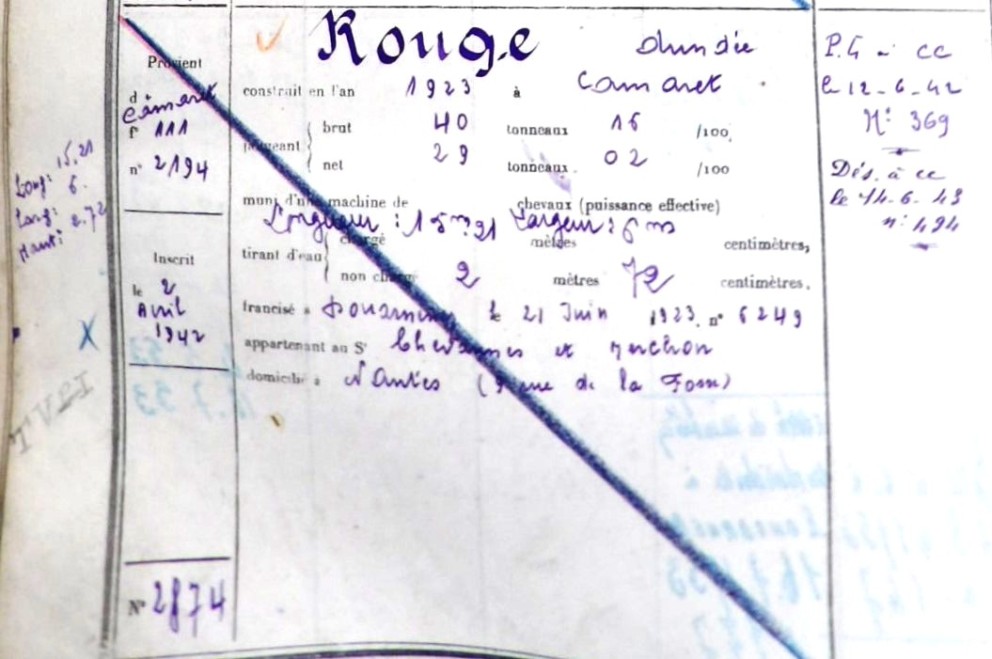 Rouge Dundée
Provient
d Camaret
f° 111
n° 2194
Long: 15,21
Larg: 6.
Haut: 2.72
Inscrit
le 2
Avril
1942
N° 2874
construit en l'an 1923 à Camaret
jaugeant brut 40 tonneaux 16 /100
net 29 tonneaux 02 /100
muni d'une machine de chevaux (puissance effective)
Longueur : 15 m 21 Largeur : 6 m
tirant d'eau chargé mètres centimètres,
non chargé 2 mètres 72 centimètres.
francisé à Douarnenez le 21 Juin 1923 n° 6249
appartenant au Sr et
domicilié à Nantes ( de la Fosse)
P.G - cc
le 12-6-42
N: 369
Dés. à cc
le 14.6.43
n: 494